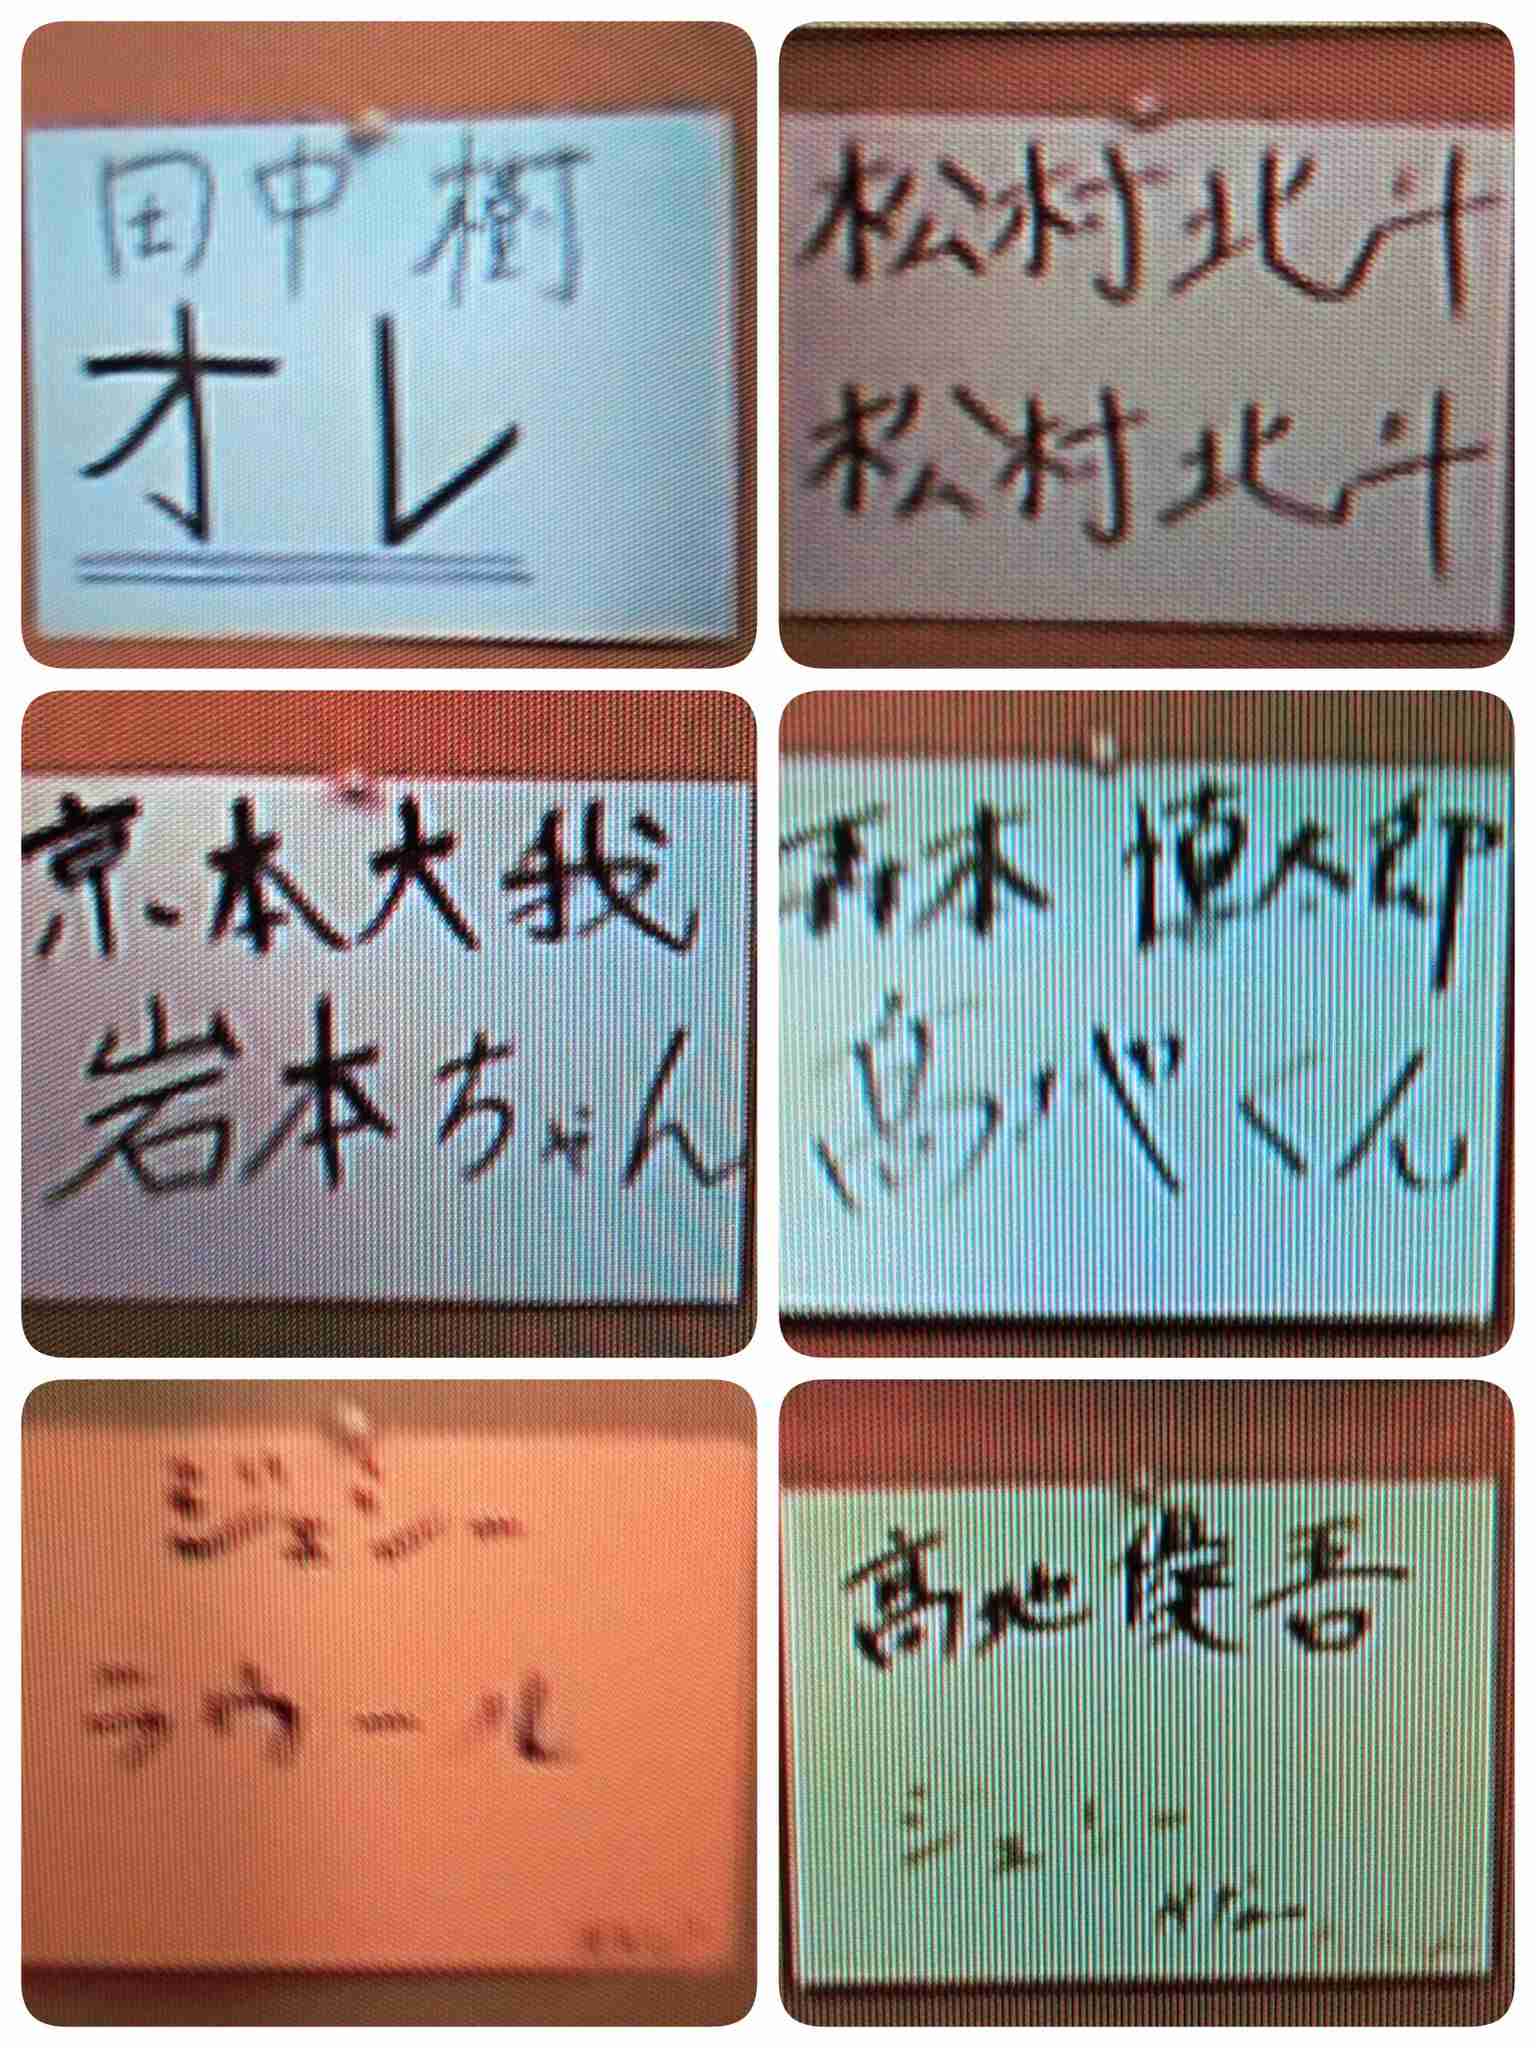 田中 樹
オレ
松村北斗
松村北斗
京本大我
岩本ちゃん
高木 恒太郎
高心くん
ジェシー
ラウール
高地優吾
ジェシー